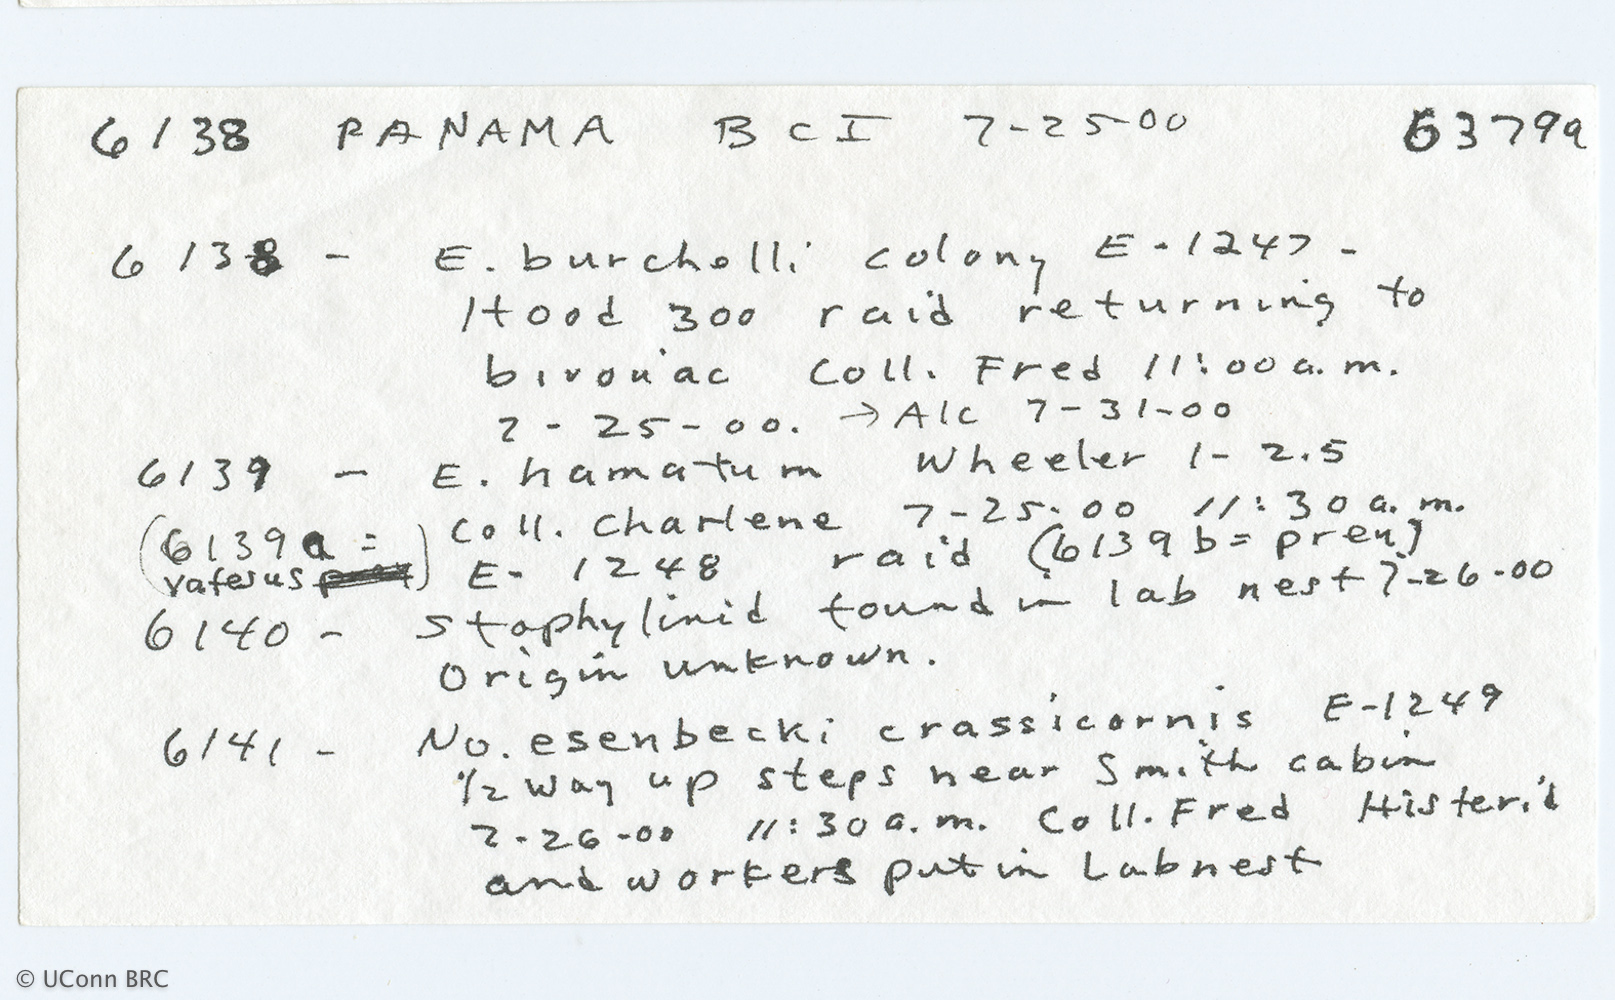 6138 PANAMA BCI 7-25-00 6379a
6138 - E. burchelli colony E-1247 -
Hood 300 raid returning to
bivouac Coll. Fred 11:00 a.m.
7-25-00. → Alc 7-31-00
6139 - E. hamatum Wheeler 1-2.5
Coll. Charlene 7-25-00 11:30 a.m.
(6139a = vatesus) E-1248 raid (6139b = prey)
6140 - Staphylinid found in lab nest 7-26-00
Origin unknown.
6141 - No. esenbecki crassicornis E-1249
1/2 way up steps near Smith cabin
7-26-00 11:30 a.m. Coll. Fred Histerid
and workers put in Labnest
© UConn BRC